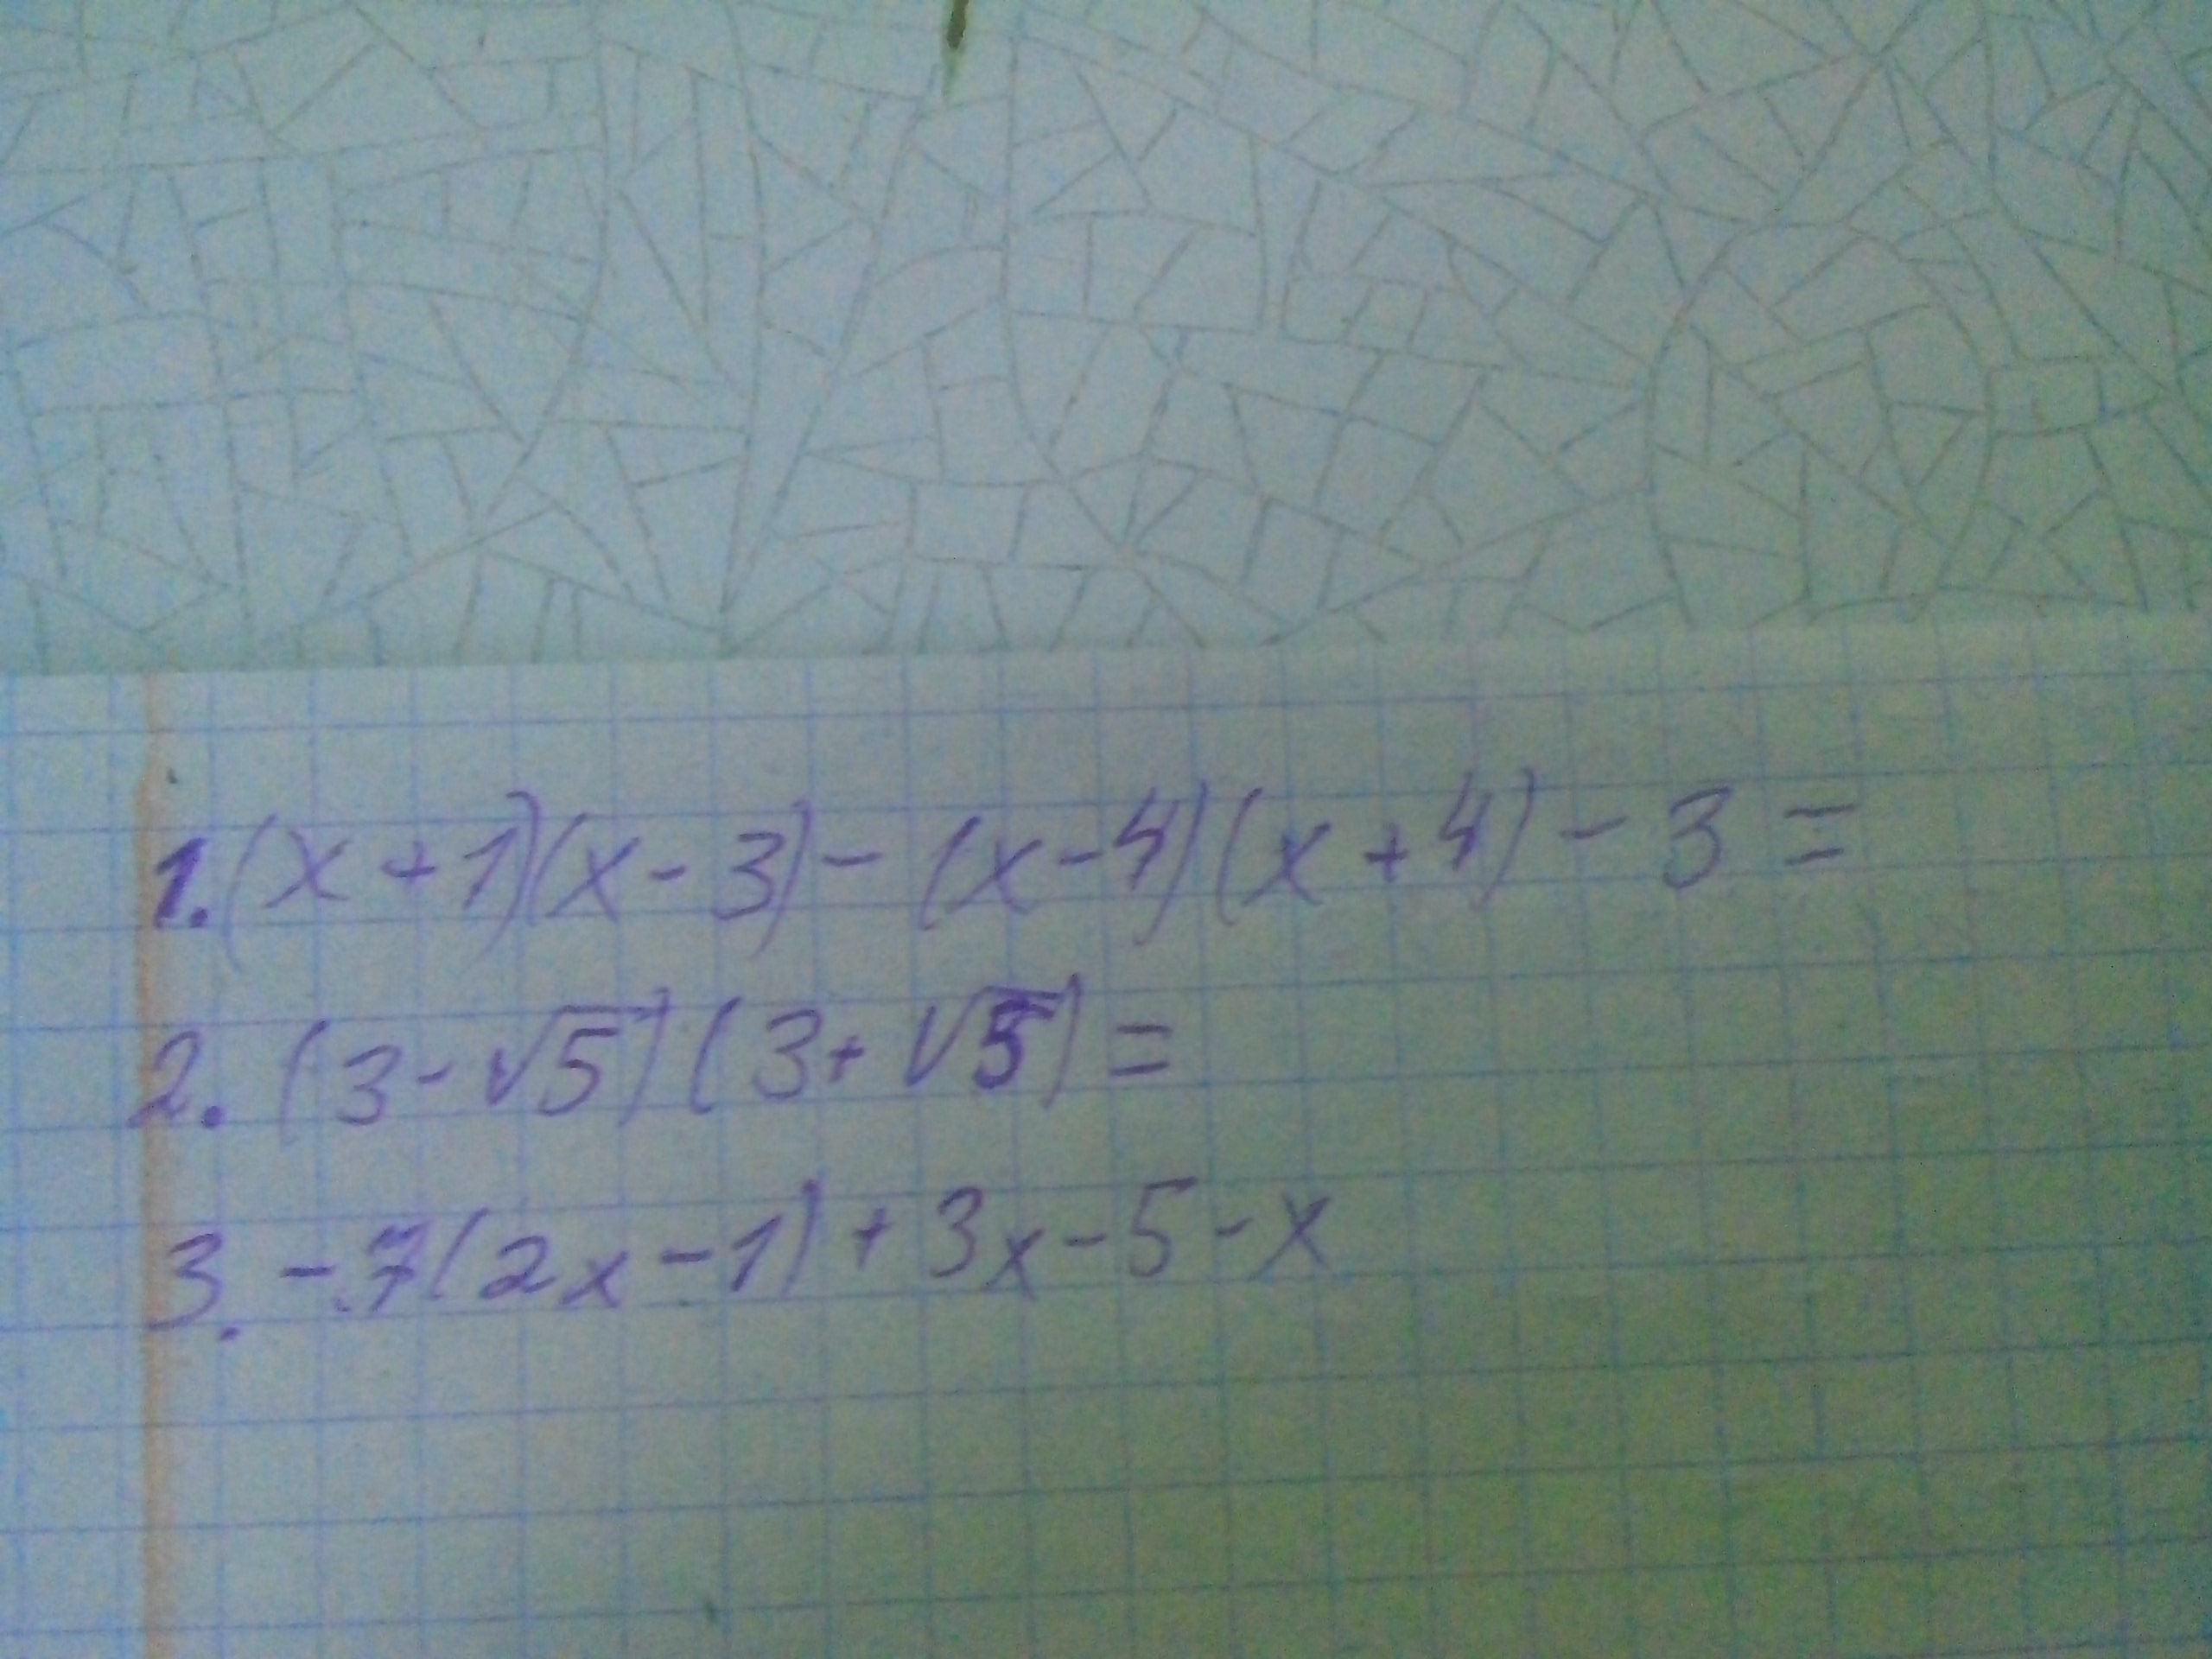 1. (x+1)(x-3)-(x-4)(x+4)-3=
2. (3-√5)(3+√5)=
3. -7(2x-1)+3x-5-x